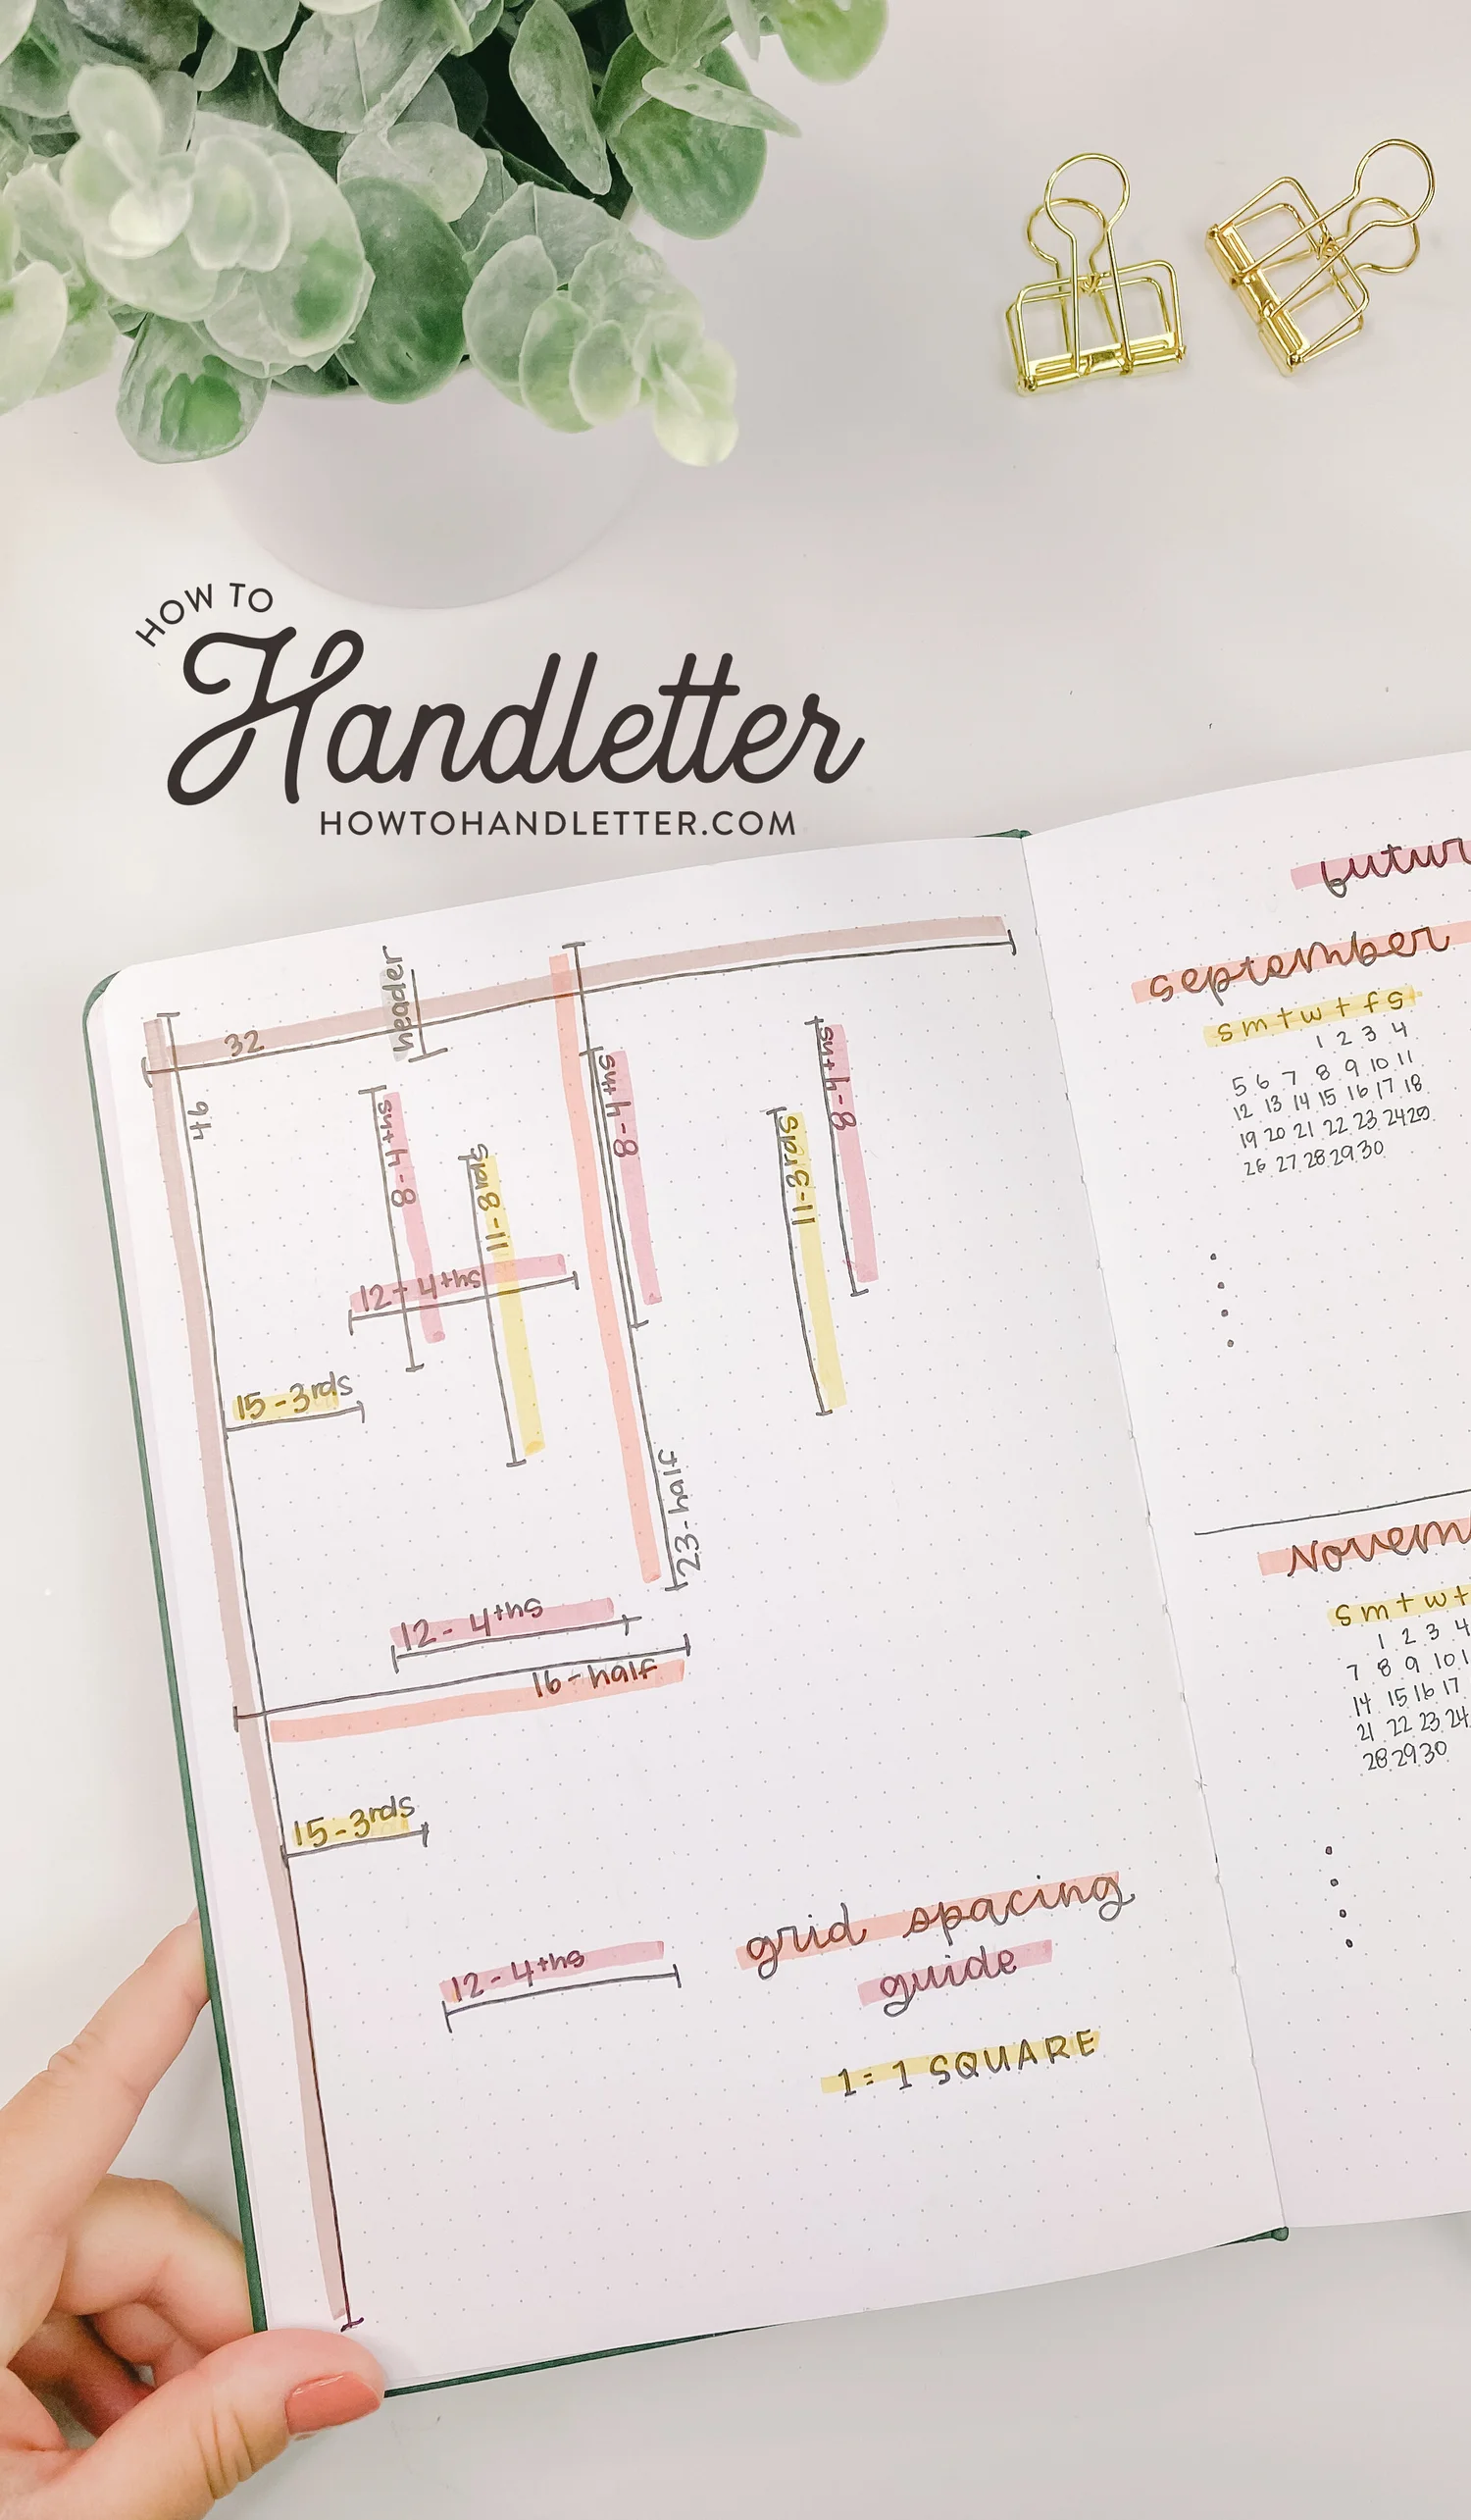 HOW TO
Handletter
HOWTOHANDLETTER.COM
header
32
46
8-4ths
11-3rds
8-4ths
11-3rds
8-4ths
12-4ths
15-3rds
23-half
12-4ths
16-half
15-3rds
12-4ths
grid spacing
guide
1=1 SQUARE
september
s m t w t f s
1 2 3 4
5 6 7 8 9 10 11
12 13 14 15 16 17 18
19 20 21 22 23 24 25
26 27 28 29 30
s m t w t
1 2 3 4
7 8 9 10
14 15 16 17
21 22 23 24
28 29 30